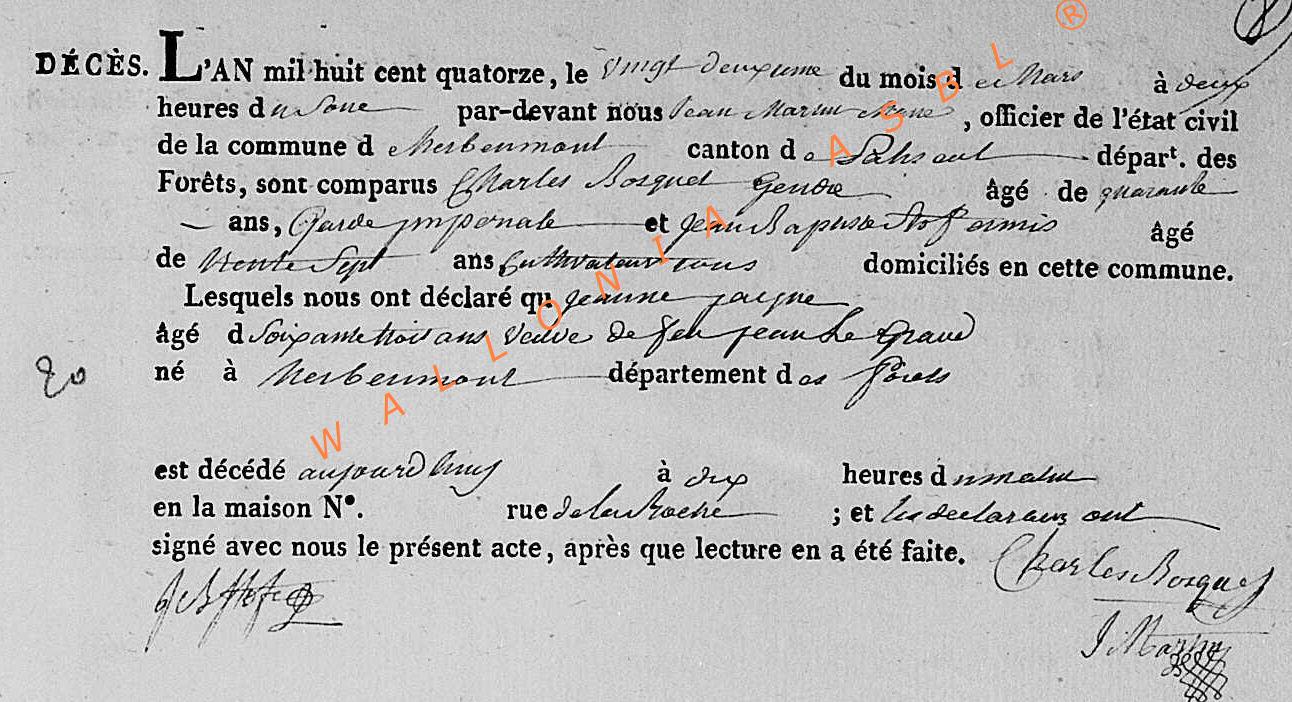 DÉCÈS. L'AN mil huit cent quatorze, le vingt deuxieme du mois d e Mars à deux
heures du Soire par-devant nous Jean Martin maire, officier de l'état civil
de la commune d herbeumont canton de Paliseul départ. des
Forêts, sont comparus Charles Bosquet Gendre âgé de quarante
ans, Garde imperiale et jean Baptiste âgé
de trente Sept ans Cultivateur tous domiciliés en cette commune.
Lesquels nous ont déclaré qu jeanne
âgé d Soixante trois ans veuve de feu jean Le Grand
né à herbeumont département des forets
20
est décédé aujourd huy à dix heures du matin
en la maison N°. rue de la Roche ; et les declarans ont
signé avec nous le présent acte, après que lecture en a été faite.
Charles Bosquet
J Martin
WALLONIA ASBL ®